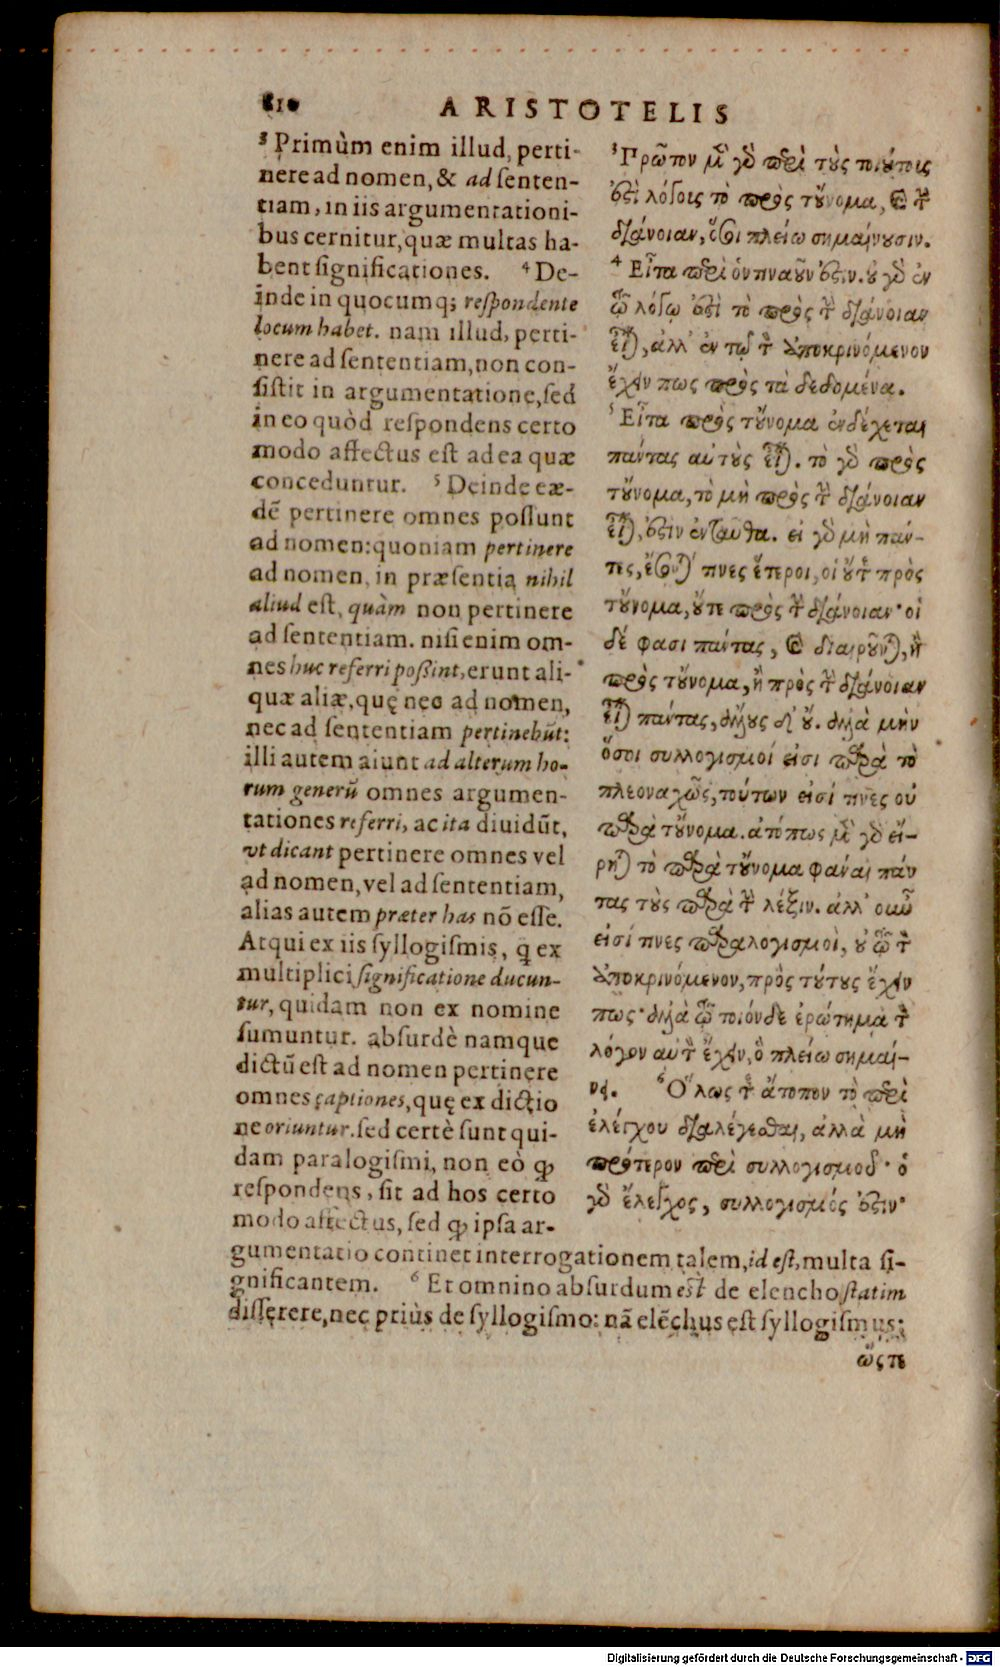 810
ARISTOTELIS
³ Primùm enim illud, perti-
nere ad nomen, & ad senten-
tiam, in iis argumentationi-
bus cernitur, quæ multas ha-
bent significationes. ⁴ De-
inde in quocumq; respondente
locum habet. nam illud, perti-
nere ad sententiam, non con-
sistit in argumentatione, sed
in eo quòd respondens certo
modo affectus est ad ea quæ
conceduntur. ⁵ Deinde eæ-
dē pertinere omnes possunt
ad nomen: quoniam pertinere
ad nomen, in præsentia nihil
aliud est, quàm non pertinere
ad sententiam. nisi enim om-
nes huc referri possint, erunt ali-
quæ aliæ, quę nec ad nomen,
nec ad sententiam pertinebūt:
illi autem aiunt ad alterum ho-
rum generū omnes argumen-
tationes referri, ac ita diuidūt,
vt dicant pertinere omnes vel
ad nomen, vel ad sententiam,
alias autem præter has nō esse.
Atqui ex iis syllogismis, q̨ ex
multiplici significatione ducun-
tur, quidam non ex nomine
sumuntur. absurdè namque
dictū est ad nomen pertinere
omnes captiones, quę ex dictio
ne oriuntur. sed certè sunt qui-
dam paralogismi, non eò ꝙ
respondens, sit ad hos certo
modo affectus, sed ꝙ ipsa ar-
gumentatio continet interrogationem talem, id est, multa si-
gnificantem. ⁶ Et omnino absurdum est de elencho statim
disserere, nec priùs de syllogismo: nā elēchus est syllogismus:
³ Πρῶτον μὲν γὸ περὶ τοὺς τοιούτοις
ἐστὶ λόγοις τὸ πρὸς τοὔνομα, καὶ τὴν
διάνοιαν, ὅσοι πλείω σημαίνουσιν.
⁴ Εἶτα περὶ ὁντιναοῦν ἐστιν. οὐ γὸ ἐν
τῷ λόγῳ ἐστὶ τὸ πρὸς τὴν διάνοιαν
εἶναι, ἀλλ' ἐν τῷ τὸν ἀποκρινόμενον
ἔχειν πως πρὸς τὰ δεδομένα.
⁵ Εἶτα πρὸς τοὔνομα ἐνδέχεται
πάντας αὐτοὺς εἶναι. τὸ γὸ πρὸς
τοὔνομα, τὸ μὴ πρὸς τὴν διάνοιαν
εἶναι, ἐστὶν ἐνταῦθα. εἰ γὸ μὴ πάν-
τες, ἔσονται τινες ἕτεροι, οἳ οὔτε πρὸς
τοὔνομα, οὔτε πρὸς τὴν διάνοιαν· οἱ
δέ φασι πάντας, καὶ διαιροῦνται, ἢ
πρὸς τοὔνομα, ἢ πρὸς τὴν διάνοιαν
εἶναι πάντας, ἄλλους δ' οὔ. ἀλλὰ μὴν
ὅσοι συλλογισμοί εἰσι παρὰ τὸ
πλεοναχῶς, τούτων εἰσί τινες οὐ
παρὰ τοὔνομα. ἀτόπως μὲν γὸ εἴ-
ρηται τὸ παρὰ τοὔνομα φάναι πάν
τας τοὺς παρὰ τὴν λέξιν. ἀλλ' οὖν
εἰσί τινες παραλογισμοὶ, οὐ τῷ τὸν
ἀποκρινόμενον, πρὸς τούτους ἔχειν
πως· ἀλλὰ τῷ τοιόνδε ἐρώτημα τὸν
λόγον αὐτὸν ἔχειν, ὃ πλείω σημαί-
νει. ⁶ Ὅλως τε ἄτοπον τὸ περὶ
ἐλέγχου διαλέγεσθαι, ἀλλὰ μὴ
πρότερον περὶ συλλογισμοῦ· ὁ
γὸ ἔλεγχος, συλλογισμός ἐστιν·
ὥςτε
Digitalisierung gefördert durch die Deutsche Forschungsgemeinschaft - DFG